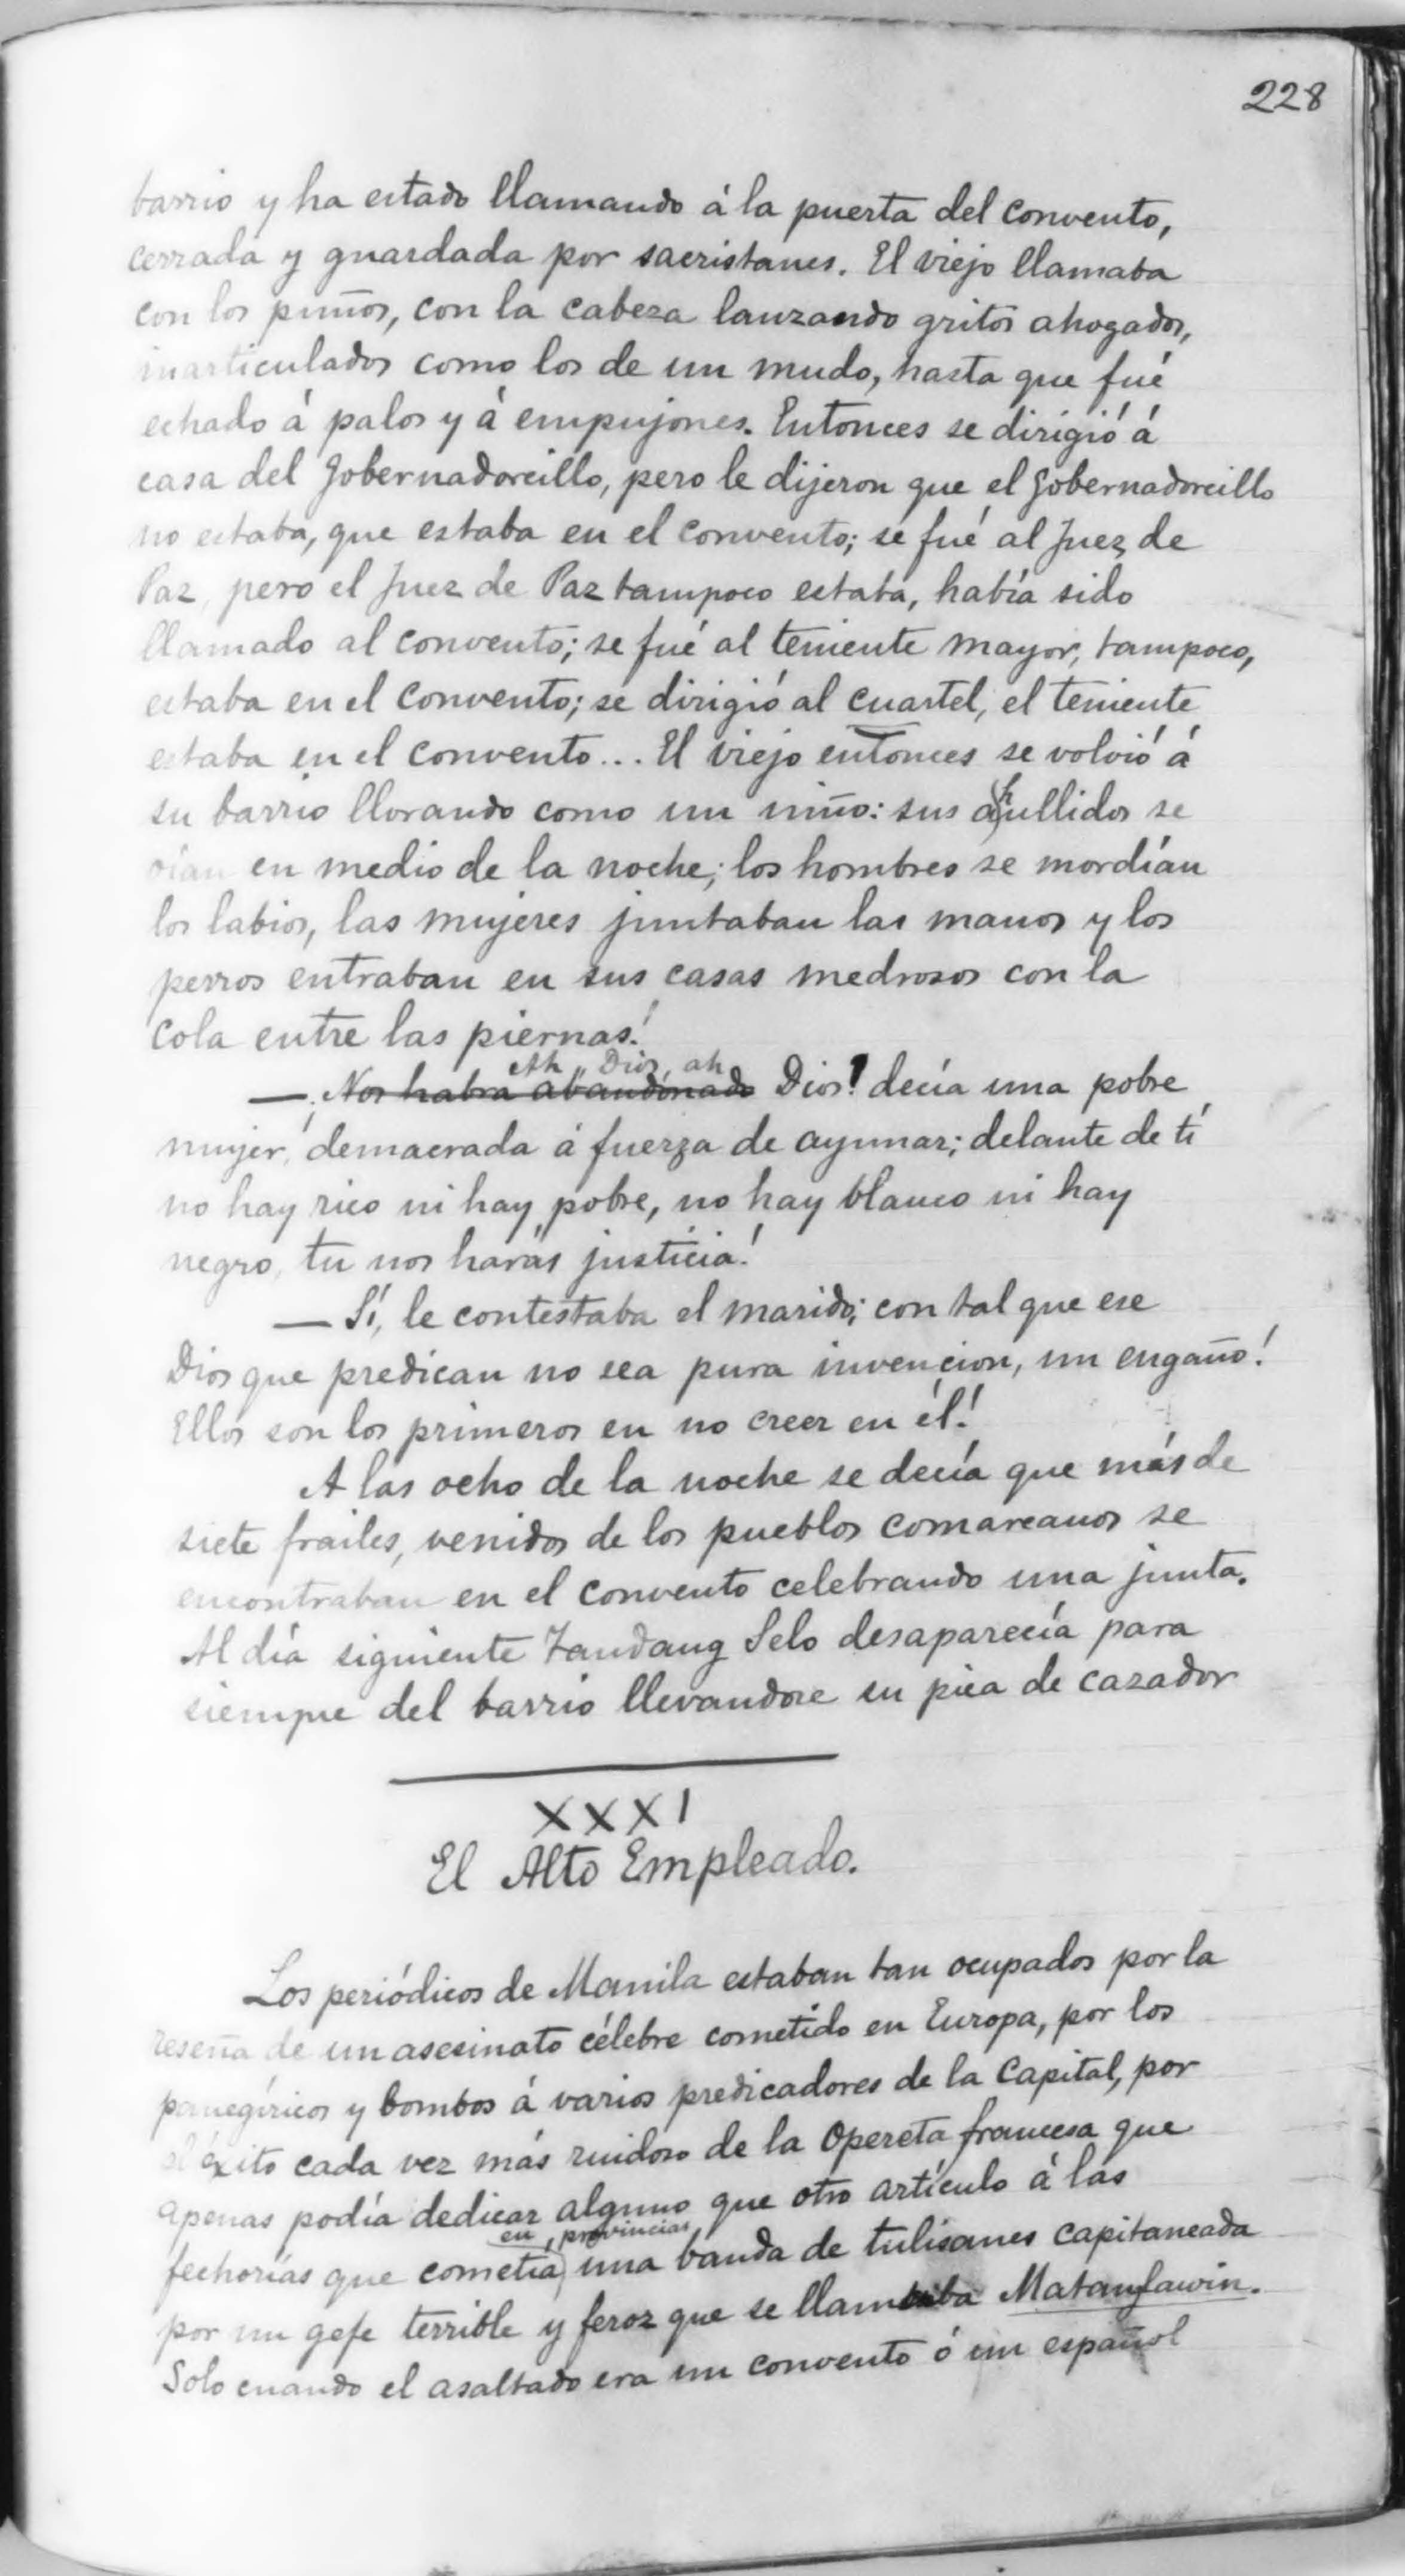 228
barrio y ha estado llamando á la puerta del convento,
cerrada y guardada por sacristanes. El viejo llamaba
con los puños, con la cabeza lanzando gritos ahogados,
inarticulados como los de un mudo, hasta que fué
echado á palos y á empujones. Entonces se dirigió á
casa del gobernadorcillo, pero le dijeron que el gobernadorcillo
no estaba, que estaba en el convento; se fué al Juez de
Paz, pero el Juez de Paz tampoco estaba, había sido
llamado al convento; se fué al teniente mayor, tampoco,
estaba en el convento; se dirigió al cuartel, el teniente
estaba en el convento... El viejo entonces se volvió á
su barrio llorando como un niño: sus ahullidos se
oían en medio de la noche; los hombres se mordían
los labios, las mujeres juntaban las manos y los
perros entraban en sus casas medrosos con la
cola entre las piernas!
Ah, Dios, ah
— ¡Nos habra abandonado Dios! decía una pobre
mujer, demacrada á fuerza de ayunar; delante de tí
no hay rico ni hay pobre, no hay blanco ni hay
negro, tu nos harás justicia!
— Sí, le contestaba el marido; con tal que ese
Dios que predican no sea pura invencion, un engaño!
Ellos son los primeros en no creer en él!
A las ocho de la noche se decía que más de
siete frailes, venidos de los pueblos comarcanos se
encontraban en el convento celebrando una junta.
Al día siguiente Tandang Selo desaparecía para
siempre del barrio llevandose su pica de cazador
XXXI
El Alto Empleado.
Los periódicos de Manila estaban tan ocupados por la
reseña de un asesinato célebre cometido en Europa, por los
panegíricos y bombos á varios predicadores de la Capital, por
el éxito cada vez más ruidoso de la Opereta francesa que
apenas podía dedicar alguno que otro artículo á las
en provincias
fechorías que cometía una banda de tulisanes capitaneada
por un gefe terrible y feroz que se llamaba Matanglawin.
Solo cuando el asaltado era un convento ó un español